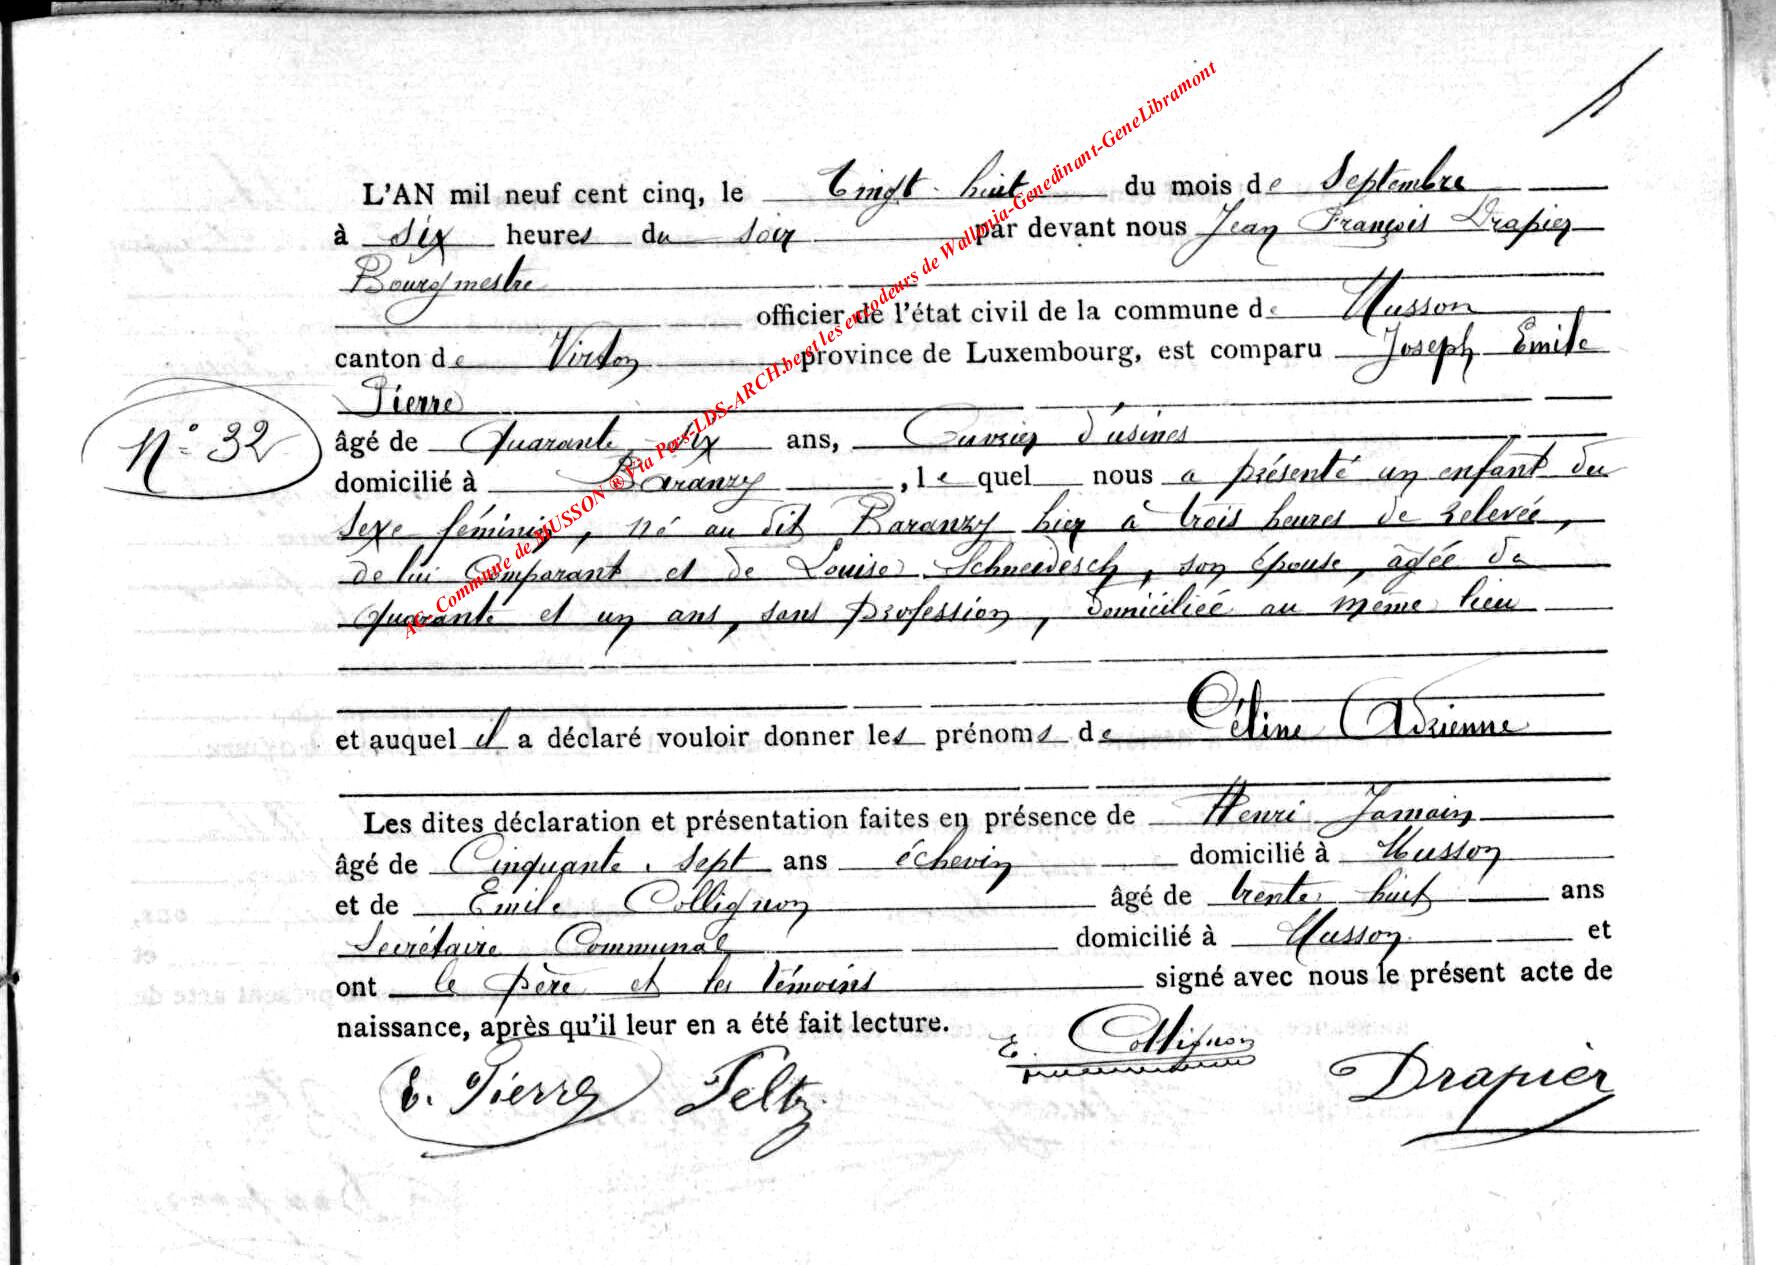 L'AN mil neuf cent cinq, le Vingt-huit du mois de Septembre
à six heures du soir par devant nous Jean François Drapier
Bourgmestre
officier de l'état civil de la commune de Musson
canton de Virton province de Luxembourg, est comparu Joseph Emile
Pierre
N° 32
âgé de Quarante six ans, Ouvrier d'usines
domicilié à Baranzy, lequel nous a présenté un enfant du
sexe féminin, né au dit Baranzy hier à trois heures de relevée,
de lui Comparant et de Louise Schneidesch, son épouse, âgée de
quarante et un ans, sans profession, domiciliée au même lieu
et auquel il a déclaré vouloir donner les prénoms de Céline Adrienne
Les dites déclaration et présentation faites en présence de Henri Jamain
âgé de Cinquante-sept ans échevin domicilié à Musson
et de Emile Collignon âgé de trente huit ans
Secrétaire Communal domicilié à Musson et
ont le père et les témoins signé avec nous le présent acte de
naissance, après qu'il leur en a été fait lecture.
E. Pierre E. Collignon Drapier
AG. Commune de MUSSON ® Via Pers-LDS-ARCH.be et les encodeurs de Wallonia-Genedinant-GeneLibramont